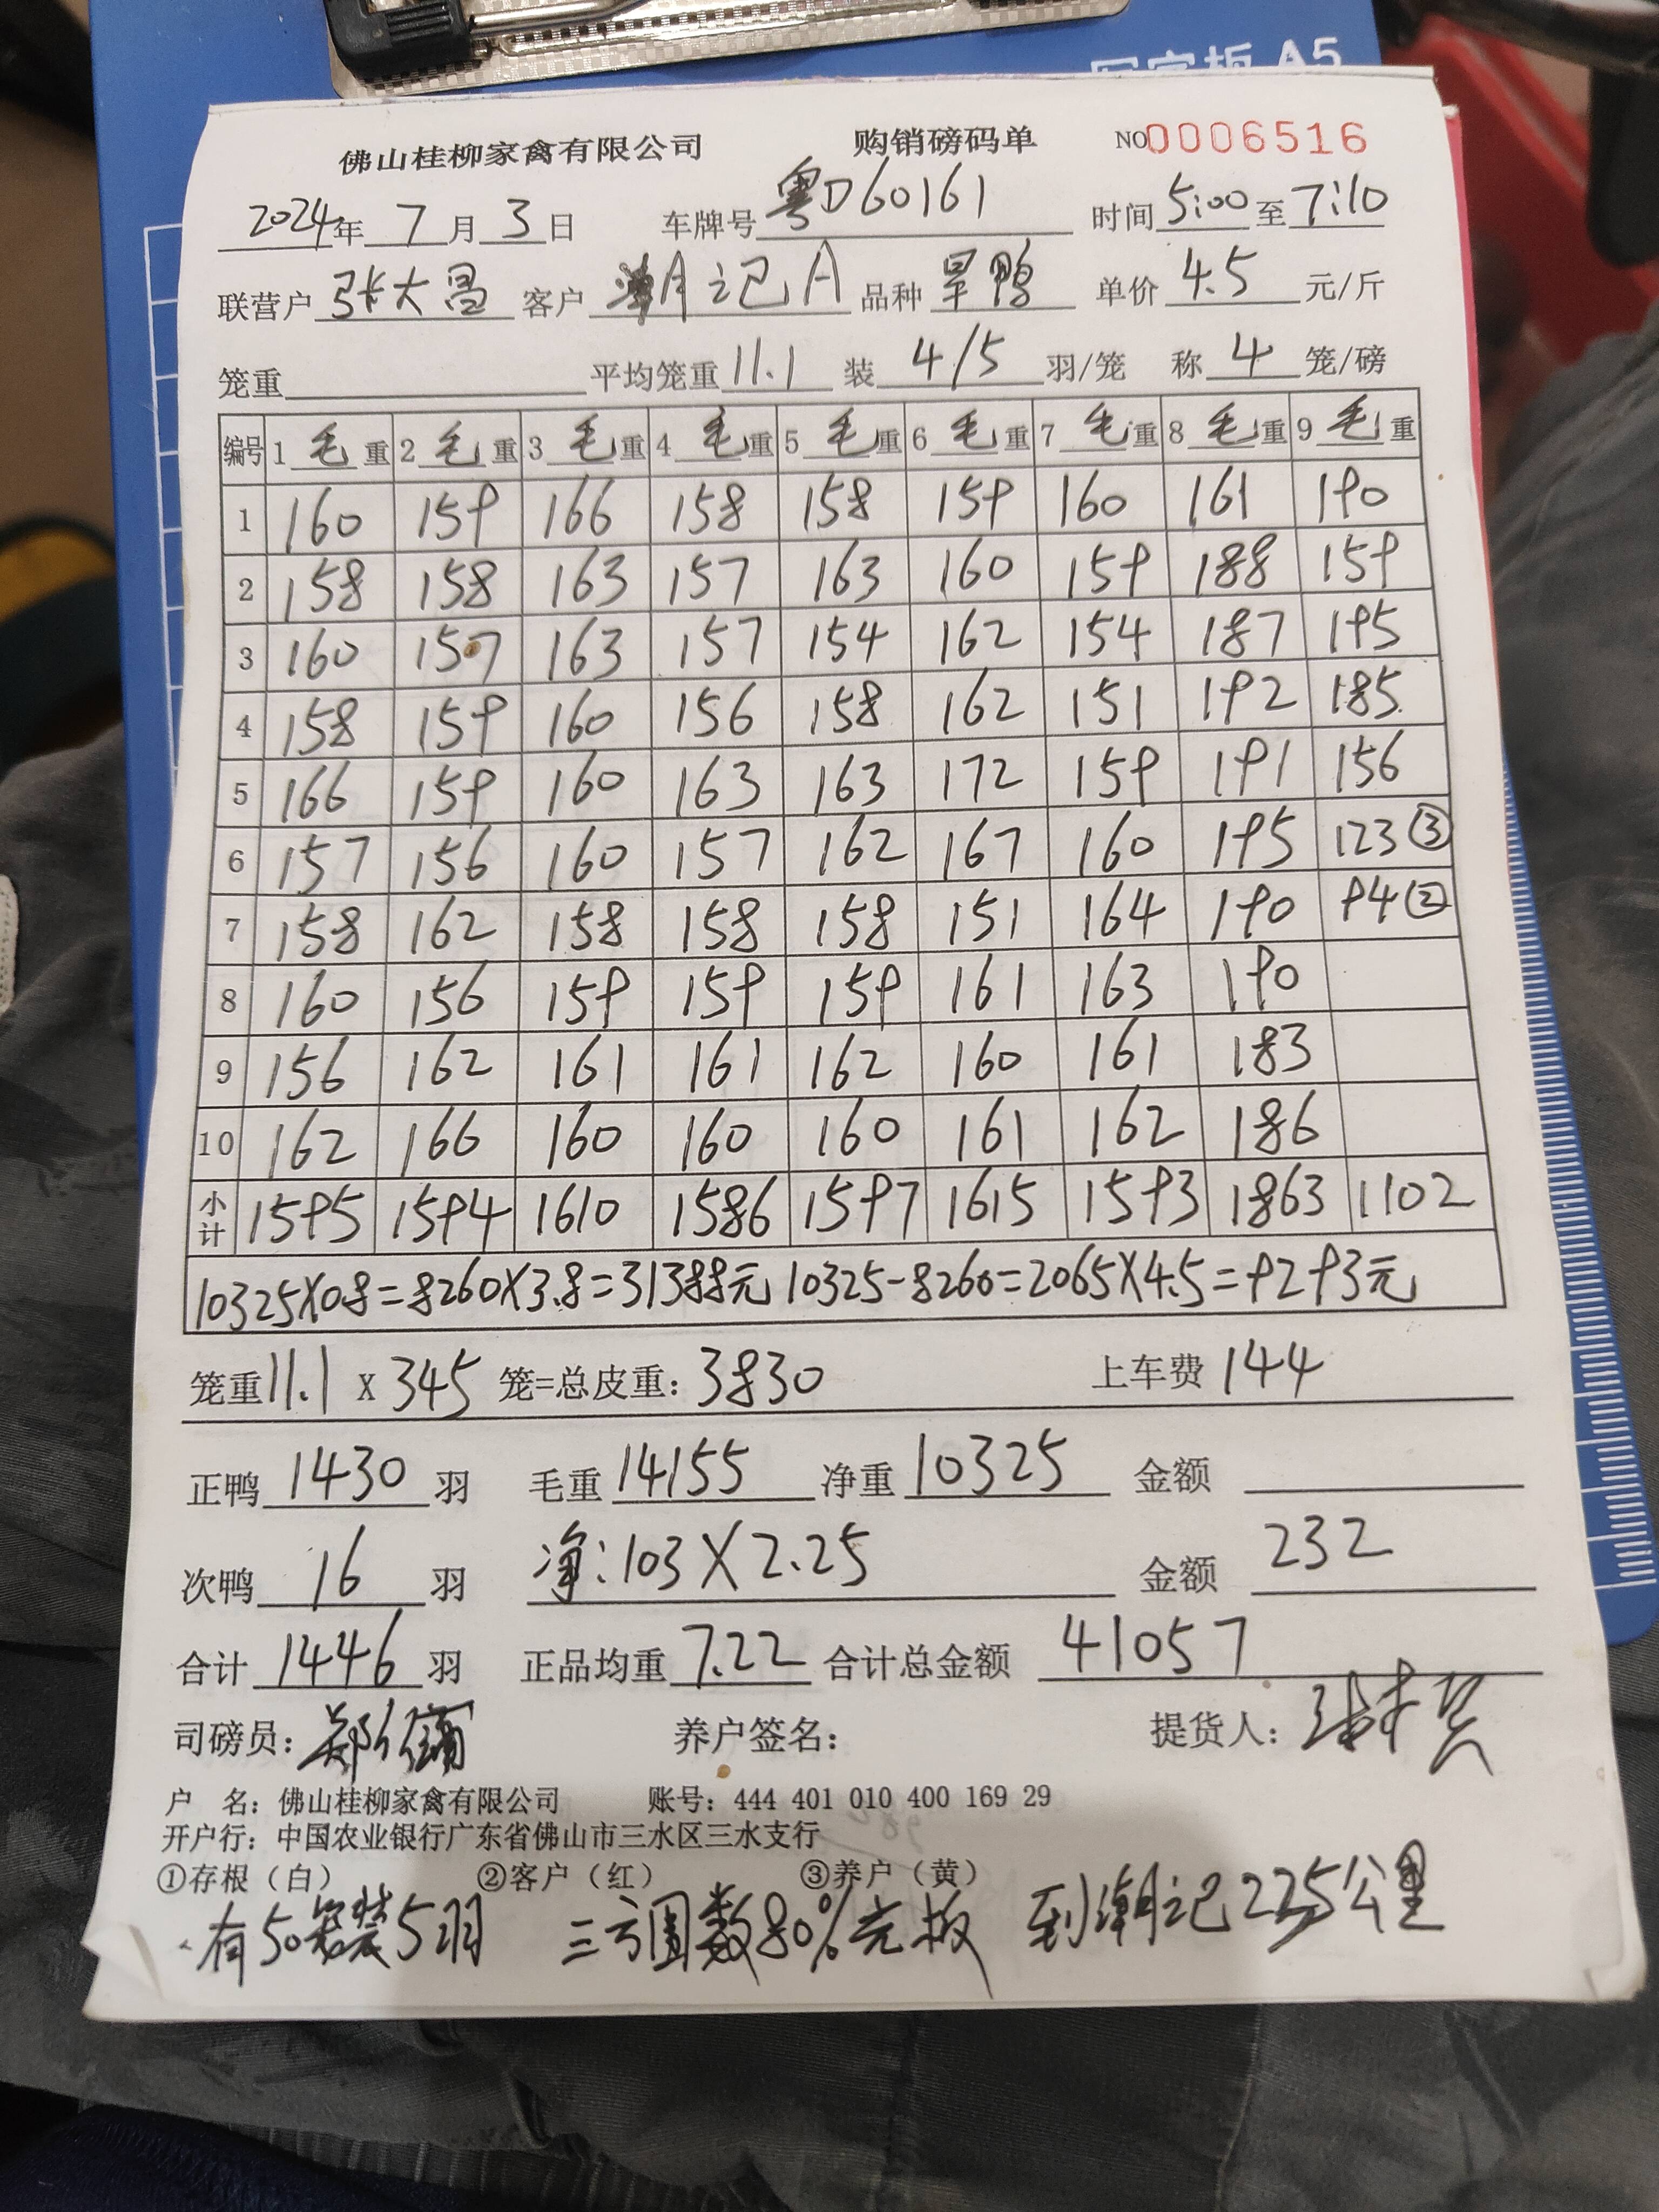 写字板 A5
佛山桂柳家禽有限公司 购销磅码单 NO0006516
2024年 7 月 3 日 车牌号 粤D60161 时间 5:00 至 7:10
联营户 张大昌 客户 潮记A 品种 旱鸭 单价 4.5 元/斤
笼重 平均笼重 11.1 装 4/5 羽/笼 称 4 笼/磅
编号 1 毛 重 2 毛 重 3 毛 重 4 毛 重 5 毛 重 6 毛 重 7 毛 重 8 毛 重 9 毛 重
1 160 159 166 158 158 159 160 161 190
2 158 158 163 157 163 160 159 188 159
3 160 157 163 157 154 162 154 187 195
4 158 159 160 156 158 162 151 192 185
5 166 159 160 163 163 172 159 191 156
6 157 156 160 157 162 167 160 195 123③
7 158 162 158 158 158 151 164 190 94②
8 160 156 159 159 159 161 163 190
9 156 162 161 161 162 160 161 183
10 162 166 160 160 160 161 162 186
小计 1595 1594 1610 1586 1597 1615 1593 1863 1102
10325X0.8=8260X3.8=31388元 10325-8260=2065X4.5=9293元
笼重11.1 x 345 笼=总皮重: 3830 上车费 144
正鸭 1430 羽 毛重 14155 净重 10325 金额
次鸭 16 羽 净:103X2.25 金额 232
合计 1446 羽 正品均重 7.22 合计总金额 41057
司磅员: 郑 养户签名: 提货人:
户 名: 佛山桂柳家禽有限公司 账号: 444 401 010 400 169 29
开户行: 中国农业银行广东省佛山市三水区三水支行
①存根（白） ②客户（红） ③养户（黄）
有50笼装5羽 三方圆数80%光板 到潮记225公里